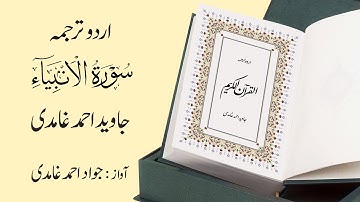 اردو ترجمہ
سُوْرَةُ الْاَنْبِيَآءِ
جاوید احمد غامدی
آواز : جواد احمد غامدی
اردو ترجمہ
القرآن الکریم
جاوید احمد غامدی